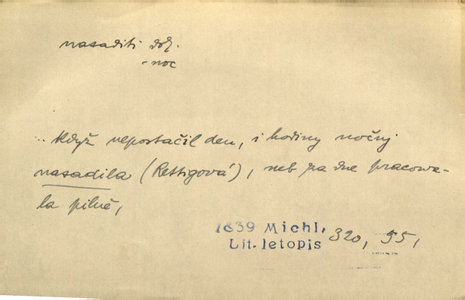 nasaditi dok.
-noc
.. když nepostačil den, i hodiny nočnj
nasadila (Rettigová), neb za dne pracowa-
la pilně,
1839 Michl,
Lit.letopis 320, 95,